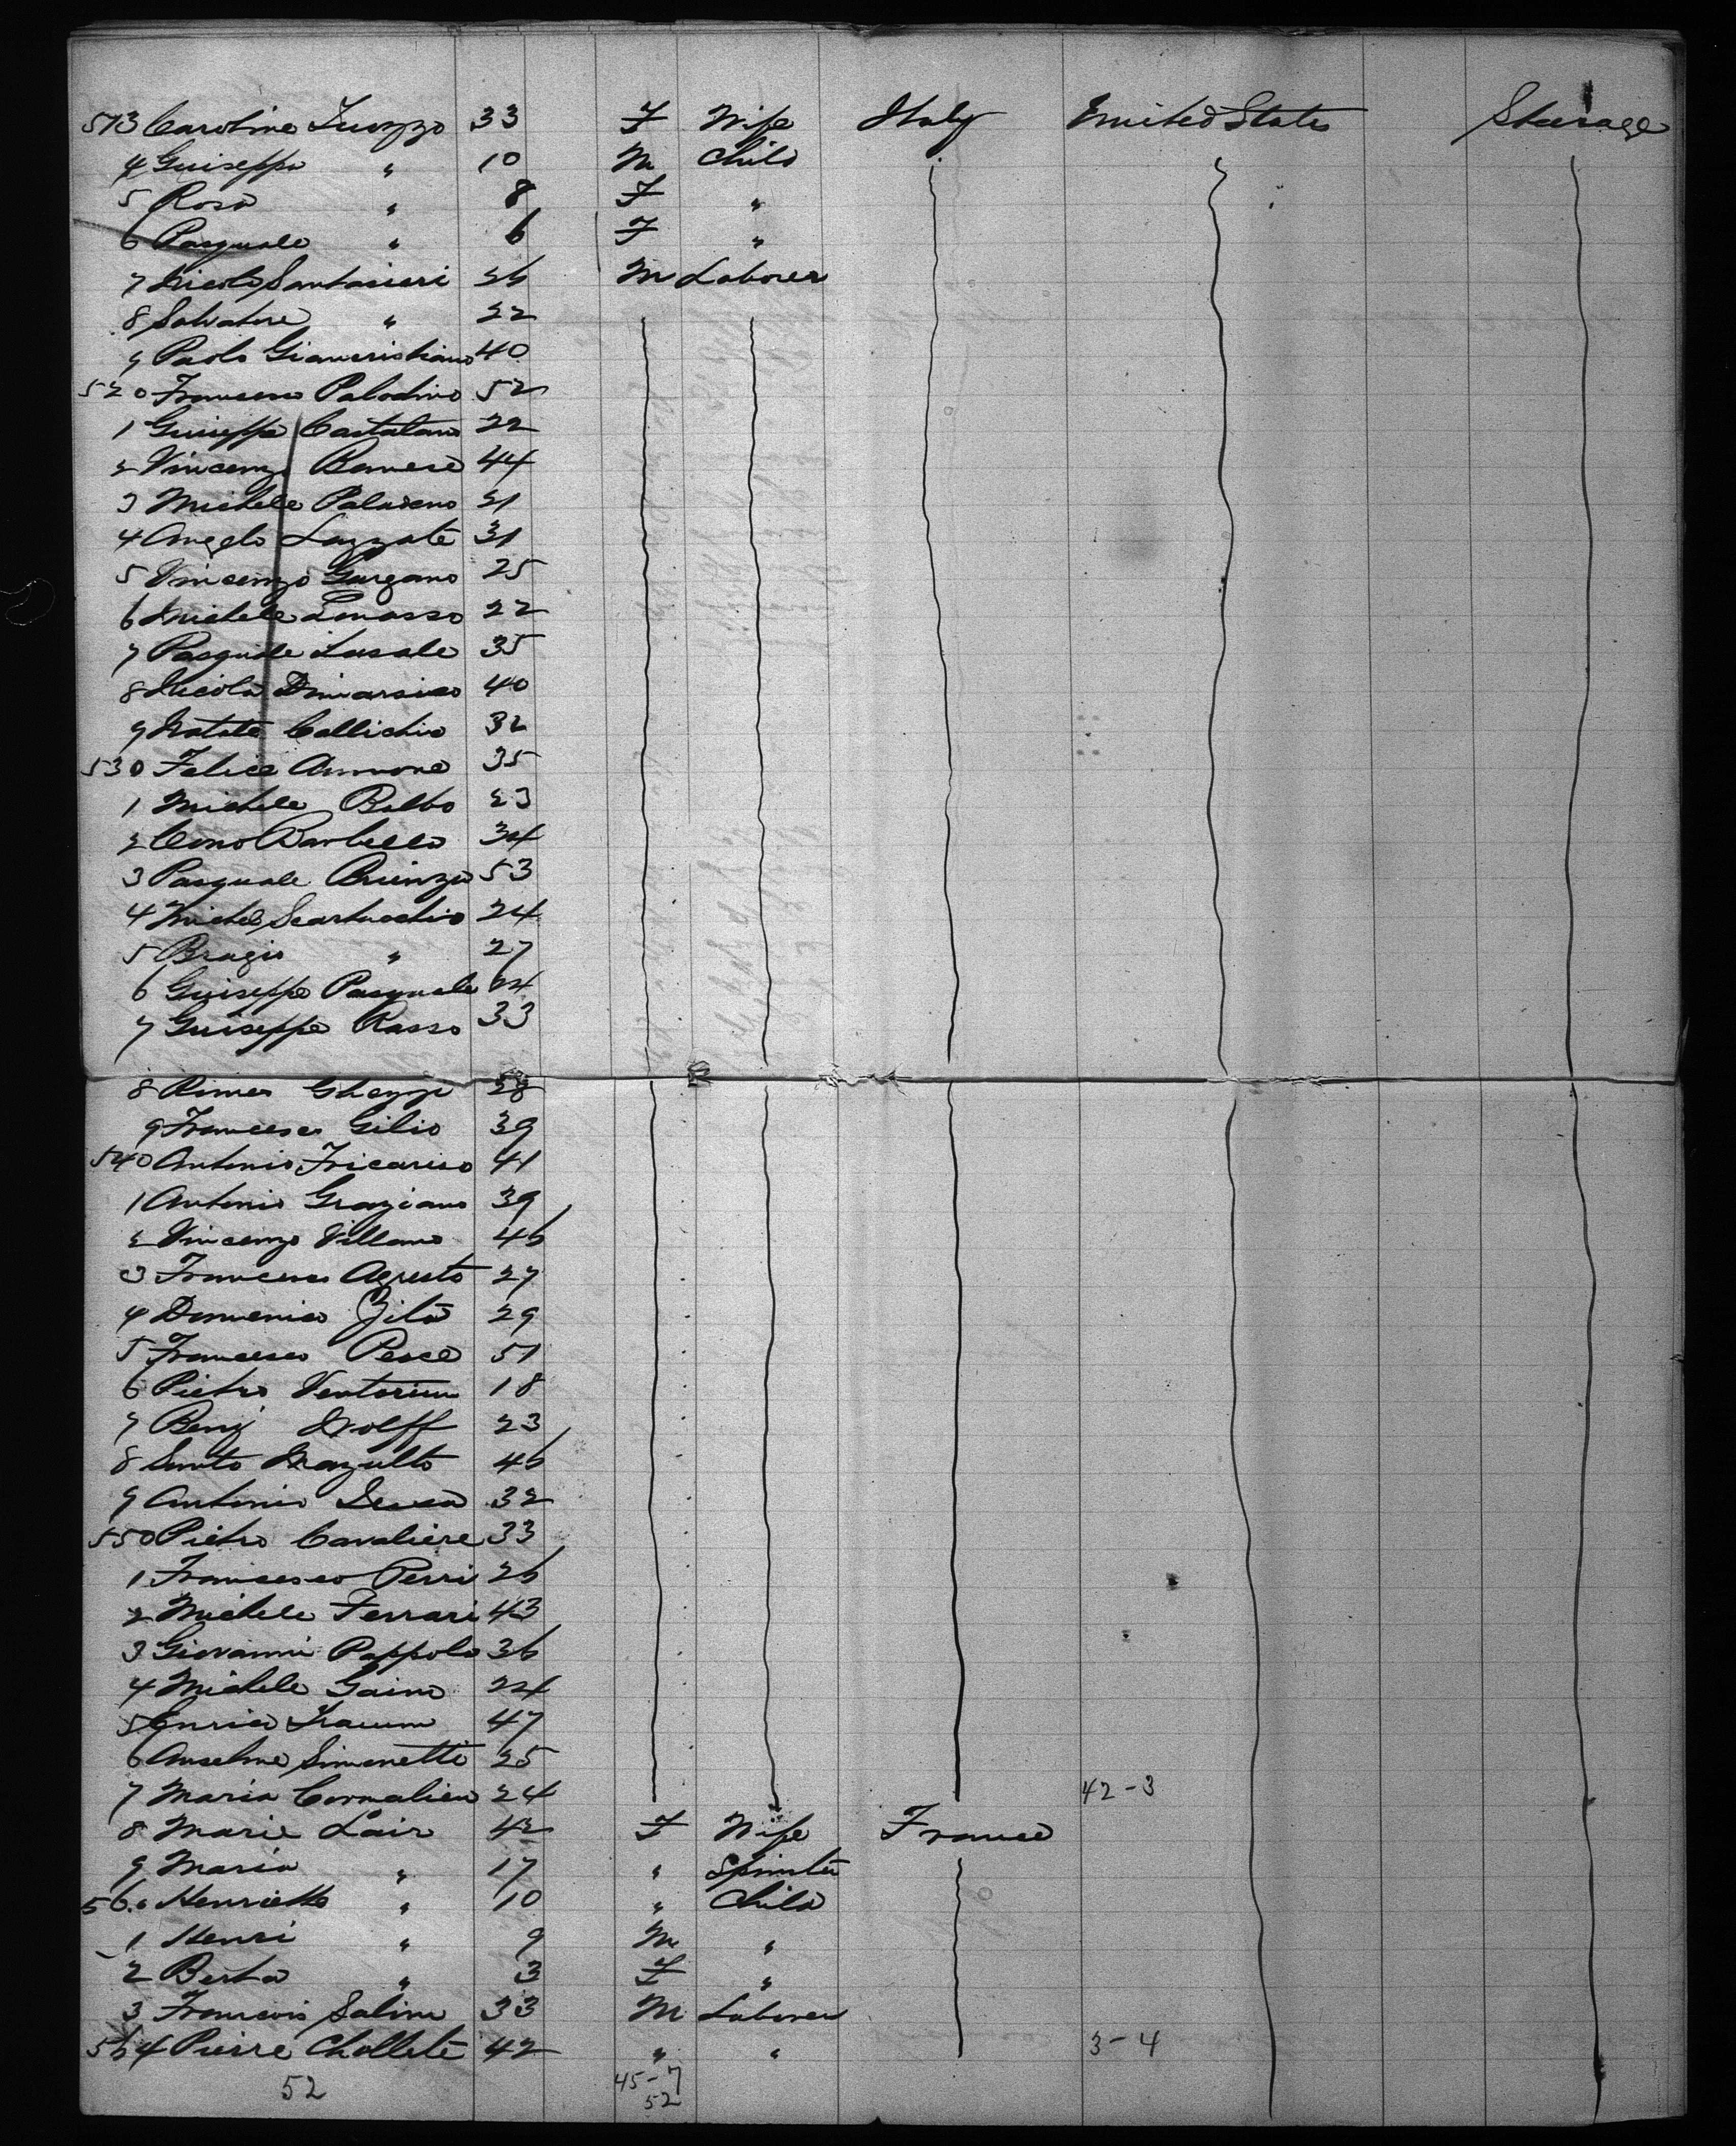 513 Caroline Tuozzo 33 F Wife Italy United States Steerage
4 Guiseppe " 10 M Child
5 Rosa " 8 F "
6 Pasquale " 6 F "
7 Nicola Santasieri 26 M Laborer
8 Salvatore " 22
9 Paolo Giancristiano 40
520 Francesco Paladino 52
1 Guiseppe Castatano 22
2 Vincenzo Barnese 44
3 Michele Paladeno 21
4 Angelo Lazzate 31
5 Vincenzo Gurgano 25
6 Michele Lomasso 22
7 Pasquale Lasale 35
8 Nicola Dimarsico 40
9 Natate Collichio 32
530 Felice Annone 35
1 Michele Balbo 23
2 Cono Barbello 34
3 Pasquale Brienza 53
4 Michele Scartucchio 24
5 Bragio " 27
6 Guiseppe Pasquale 24
7 Guiseppe Rasso 33
8 Rimes Ghezzi 28
9 Francesco Gilio 39
540 Antonio Fricariso 41
1 Antonio Graziano 39
2 Vincenzo Villano 46
3 Francesco Agresto 27
4 Domenico Zila 29
5 Francesco Pesce 51
6 Pietro Ventorim 18
7 Benj Wolff 23
8 Santo Mazulto 46
9 Antonio 32
550 Pietro Cavaliere 33
1 Francesco Perri 26
2 Michele Ferrari 43
3 Giovanni Pappolo 36
4 Michele Gaino 24
5 Enrico 47
6 Anselmo Simonetti 25
7 Maria Cormalieu 24 42-3
8 Marie Lair 42 F Wife France
9 Maria " 17 " Spinster
560 Henriette " 10 " Child
1 Henri " 9 M "
2 Berta " 3 F "
3 Francois Salim 33 M Laborer
564 Pierre Chollete 42 " " 3-4
52 45-7
52